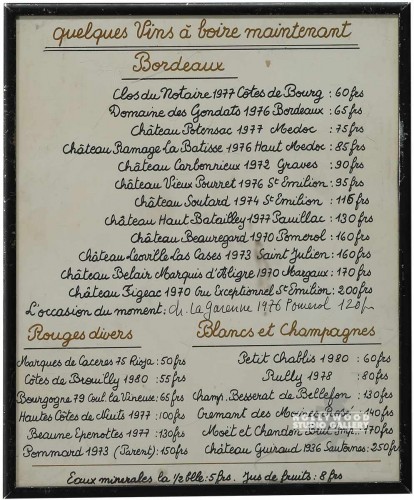 quelques Vins à boire maintenant
Bordeaux
Clos du Notaire 1977 Côtes de Bourg : 60frs
Domaine des Gondats 1976 Bordeaux : 65frs
Château Potensac 1977 Medoc : 75frs
Château Ramage La Batisse 1976 Haut Medoc : 85frs
Château Carbonrieux 1972 Graves : 90frs
Château Vieux Pourret 1976 St Emilion : 95frs
Château Soutard 1974 St Emilion : 115frs
Château Haut-Batailley 1977 Pauillac : 130frs
Château Beauregard 1970 Pomerol : 160frs
Château Leoville Las Cases 1973 Saint Julien : 160frs
Château Belair Marquis d'Aligre 1970 Margaux : 170frs
Château Figeac 1970 Cru Exceptionel St Emilion : 200frs
L'occasion du moment : ch. La Garenne 1976 Pomerol 120fr
Rouges divers
Marques de Caceres 75 Rioja : 50frs
Côtes de Brouilly 1980 : 55frs
Bourgogne 79 Coul. La Vineuse : 65frs
Hautes Côtes de Nuits 1977 : 100frs
Beaune Epenottes 1977 : 130frs
Pommard 1973 (Parent) : 150frs
Blancs et Champagnes
Petit Chablis 1980 : 60frs
Rully 1978 : 80frs
Champ. Besserat de Bellefon : 130frs
Cremant des Moines Rosé : 140frs
Moët et Chandon Brut Imp. : 170frs
Château Guiraud 1936 Sauternes : 250frs
HOLLYWOOD
STUDIO GALLERY
Eaux minerales la 1/2 blle : 5frs. Jus de fruits : 8frs